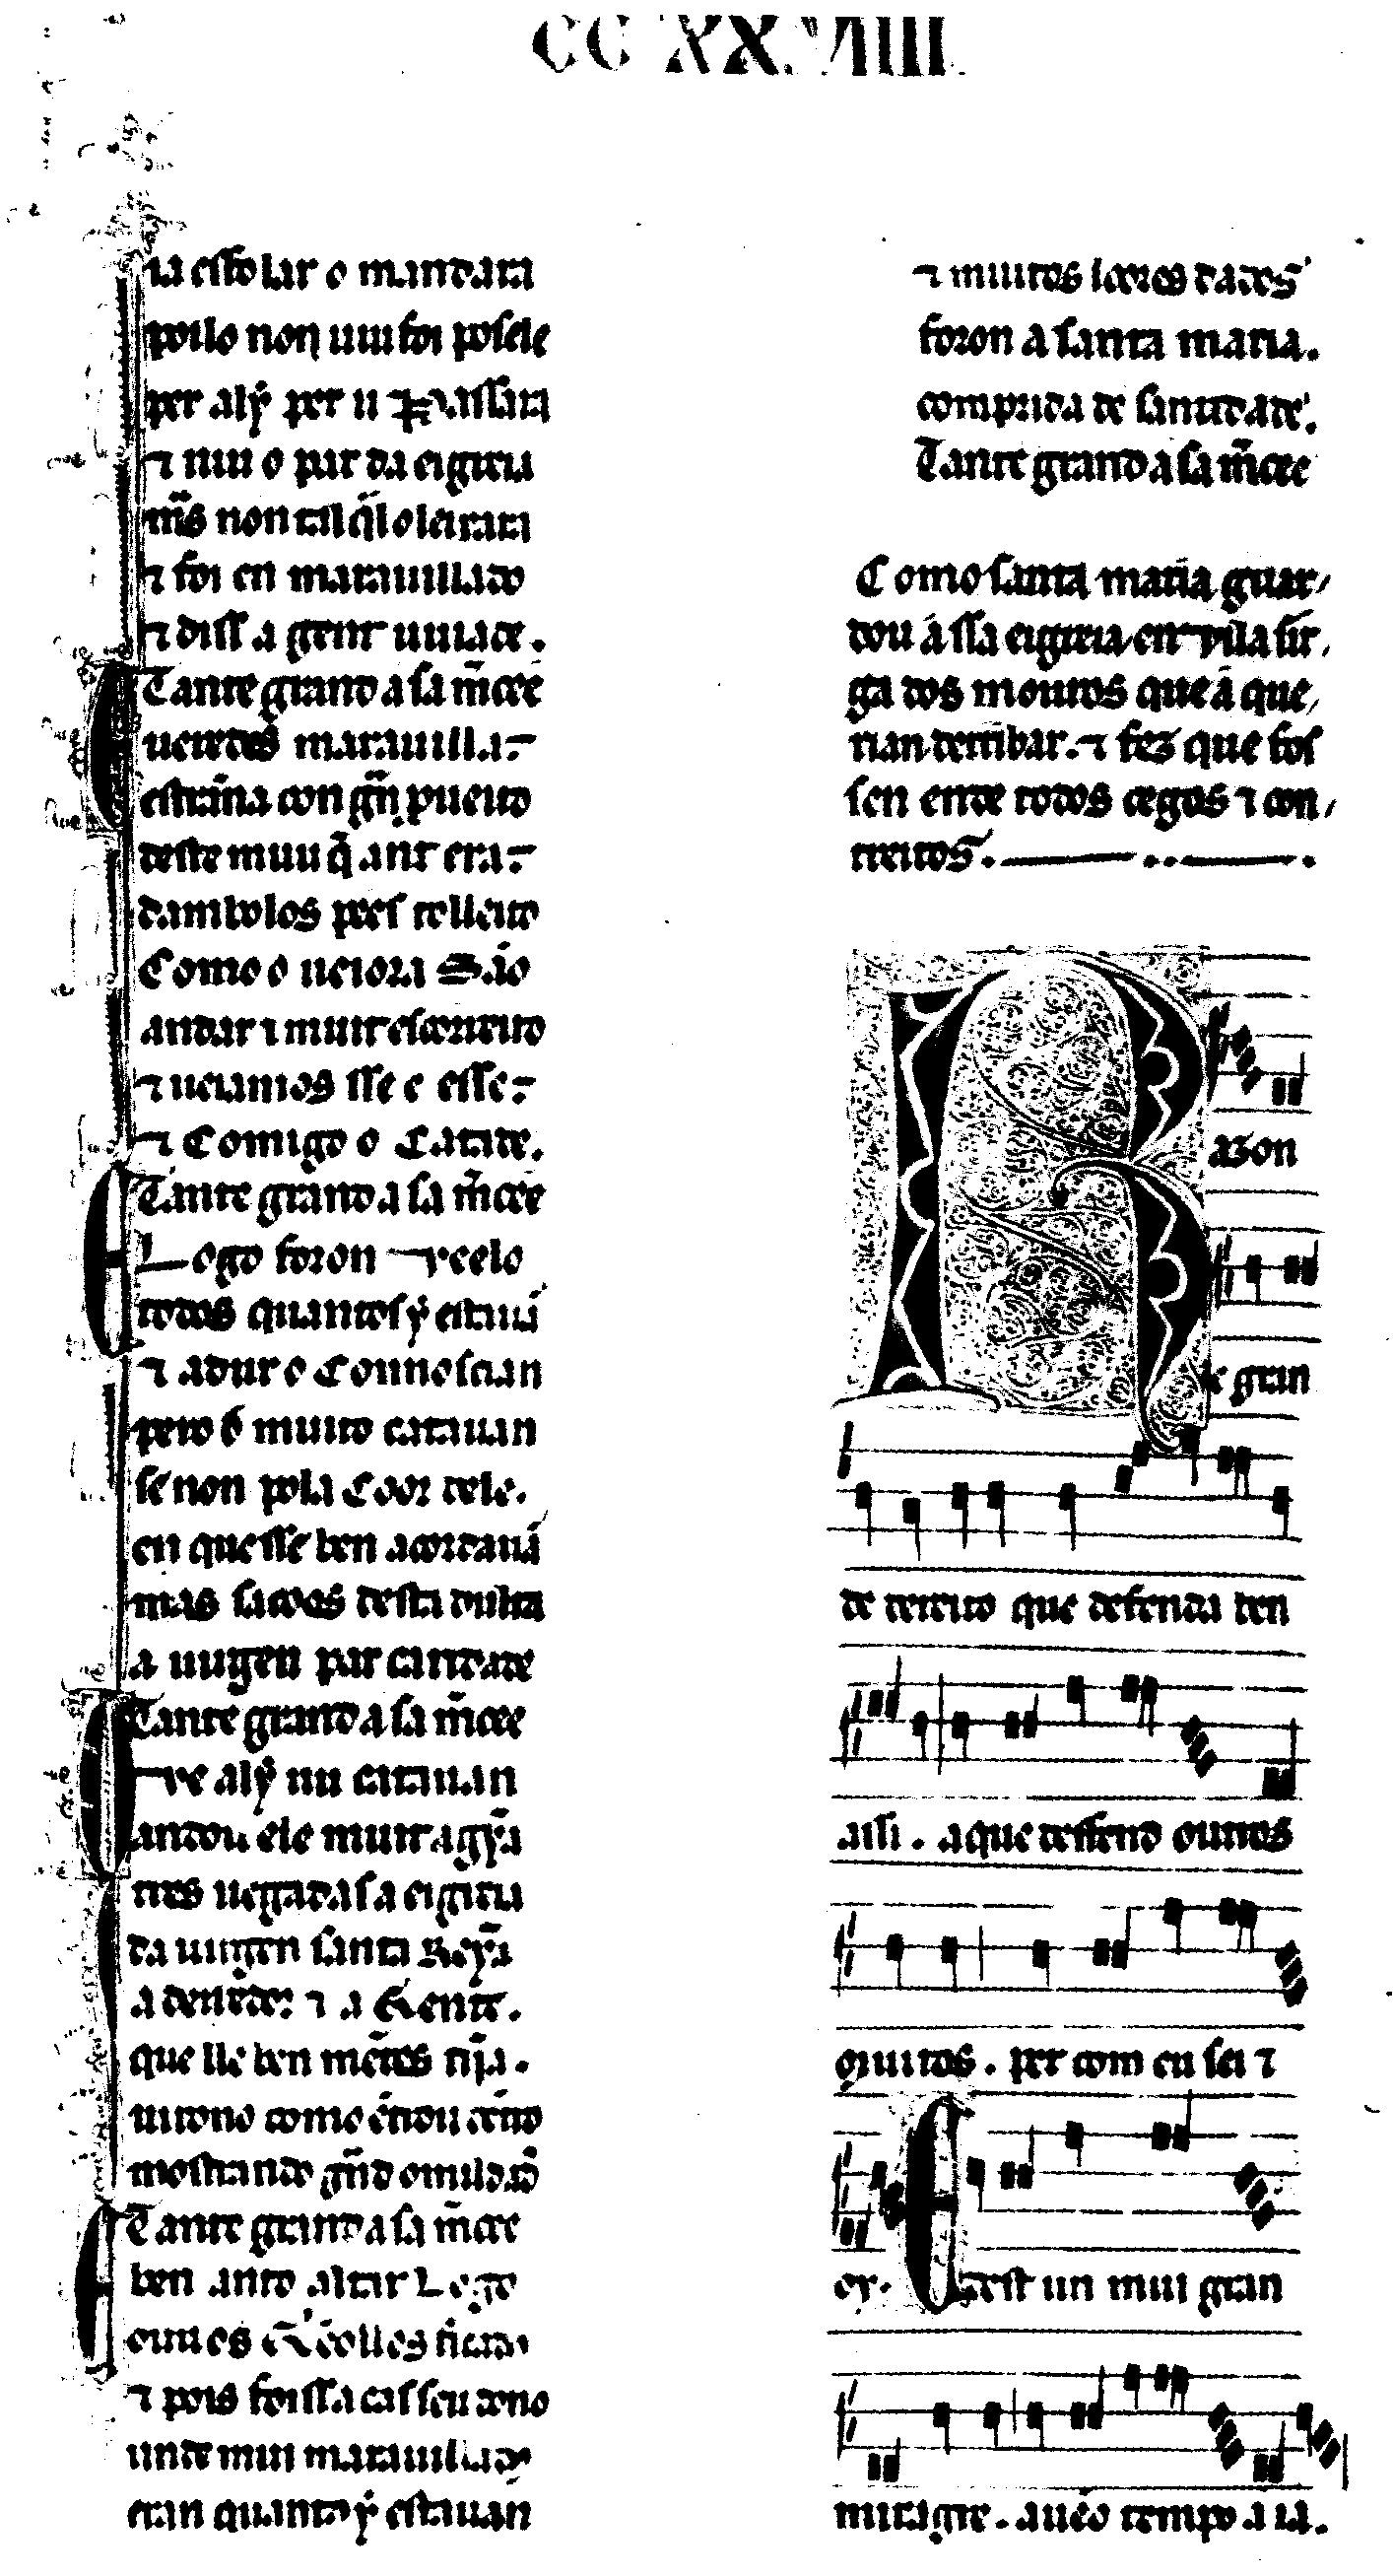 CC XX VIIII
ia esfolar o mandara
poilo non uiu foi posele
per aly per u passara
⁊ uiu o par da eigreia
mas non tal q̃lo leixara
⁊ foi en marauillado
⁊ diss a gent uuiade.
Tante grand a sa m̃cee
ueeredes marauilla:
estrãna con gñ pueito
deste muu q̃ ant era:
dambolos pees tolleito
Como o ueiora São
andar ⁊ muit escorreito
⁊ ueiamos sse e esse:
⁊ Comigo o Catade.
Tante grand a sa m̃cee
Logo foron veelo
todos quantos y estauã
⁊ adur o Connoscian
pero ó muito catauan
se non pola Coor dele.
en que sse ben acordauã
mas sacoos desta dulta
a uirgen par caridade
Tante grand a sa m̃cee
aly uu catauan
andou ele muit agỹa
tres uegadas a eigreia
da uirgen santa Reỹa
a deuredor ⁊ a Gente.
que lle ben mẽtes tĩja.
uirono como ẽtrou dẽtro
mostrando grñd omildad̃
Tante grand a sa m̃cee
ben anto altar Logo
⁊ pois foi ssa cas seu dono
unde mui marauillados
eran quantos y estauan
⁊ muitos loores dados
foron a santa maria.
comprida de santidade.
Tante grand a sa m̃cee
Como santa maria guar-
dou a ssa eigreia en vila sir-
ga dos mouros que a que-
rian derribar. ⁊ fez que fos
sen ende todos cegos ⁊ con-
treitos.
Razon
e gran
de dereito que defenda ben
assi. a que defend outros
outros. per com eu sei ⁊
oy. E dest un mui gran
miragre. auẽo tempo a ia.